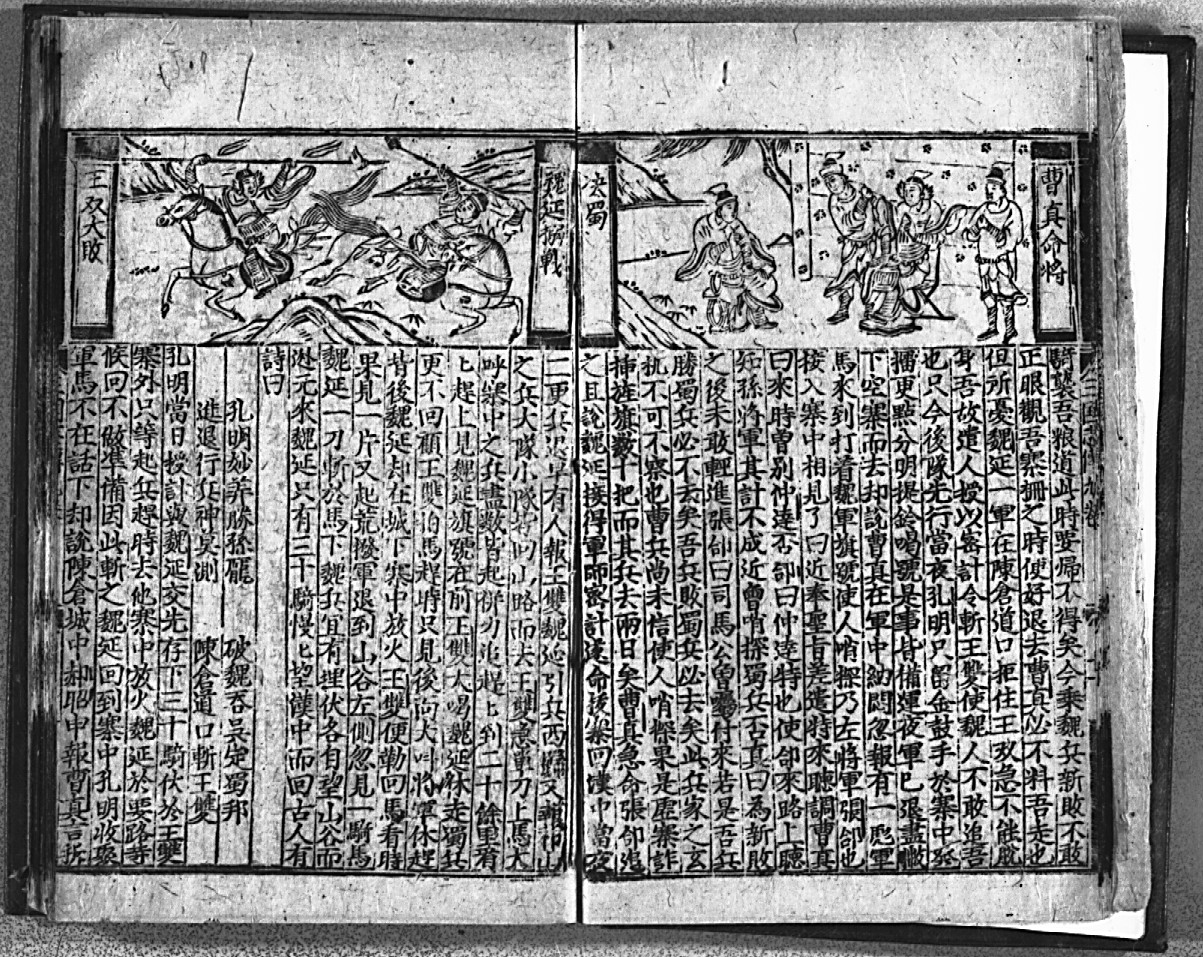 曹真命將
決蜀
騎襲吾粮道此時要帰不得矣今乗魏兵新敗不敢
正眼觀吾寨柵之時便好退去曹真必不料吾走也
但所憂魏延一軍在陳倉道口拒住王双急不能脫
身吾故遣人授以密計令斬王雙使魏人不敢追吾
也只令後隊先行當夜孔明只留金鼓手於寨中
擂更點分明提鈴喝號是事皆備連夜軍已退盡
下空寨而去却說曹真在軍中納悶忽報有一彪軍
馬來到打着魏軍旗號使人哨探乃左將軍張郃也
接入寨中相見了曰近奉聖旨差遣特來聽調曹真
曰來時曽別仲達否郃曰仲達特也使郃來路上聽
好孫將軍其計不成近曾哨探蜀兵否真曰為新敗
之後未敢輕進張郃曰司馬公曽分付來若是吾兵
勝蜀兵必不去矣吾兵敗蜀兵必去矣此兵家之玄
机不可不察也曹兵尚未信使人哨探果是虛寨詐
揷旌旗数十把而其兵去兩日矣曹真急命張郃追
之且說魏延接得軍師密計連命後寨回懐中當夜
魏延搦戰
王双大敗
二更兵退早有人報王雙魏延引兵西歸
之兵大隊小隊山路而去王雙急軍刀上馬大
呼寨中之兵盡数皆起併力追趕上到二十餘里看
七趕上見魏延旗號在前王雙大喝魏延休走蜀兵
更不回顧王雙拍馬趕時只見後面大呌將軍休趕
背後魏延却在城下寨中放火王雙便勒回馬看時
果見一片又起荒撥軍退到山谷左側忽見一騎馬
魏延一刀斬於馬下魏兵宜有埋伏各自望山谷而
迯元來魏延只有三十騎慢七望漢中而回古人有
詩曰
孔明妙筭勝孫龎　破魏吞吳定蜀邦
進退行兵神莫測　陳倉道口斬王雙
孔明當日授計與魏延交先存下三十騎伏於王雙
寨外只等起兵趕時去他寨中放火魏延於要路等
候回不做準備因此斬之魏延回到寨中孔明收聚
軍馬不在話下却說陳倉城中郝昭申報曹真言折